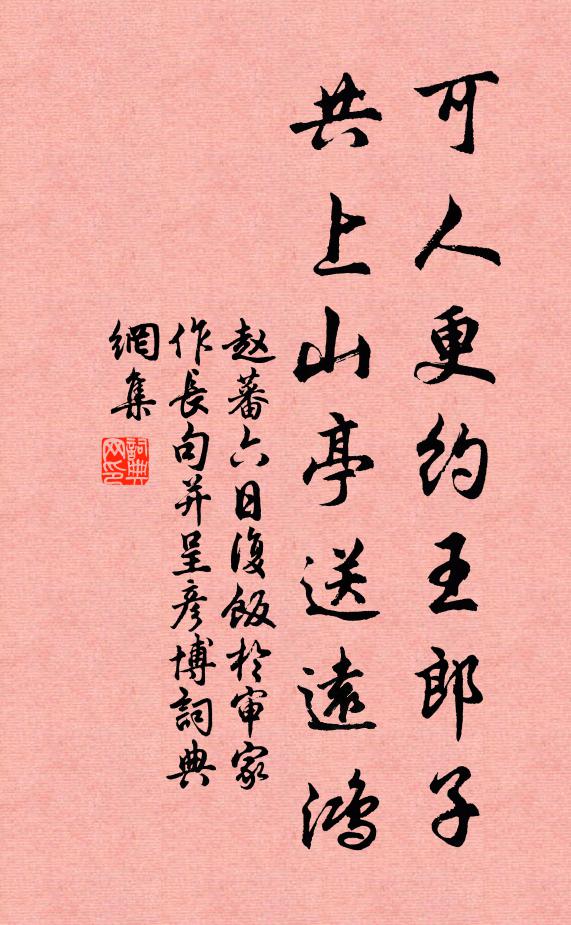 可人更约王郎子
共上山亭送遠鴻
赵蕃六日復飯於审家
作長句并呈彦博詞典
網集
詞典
网印